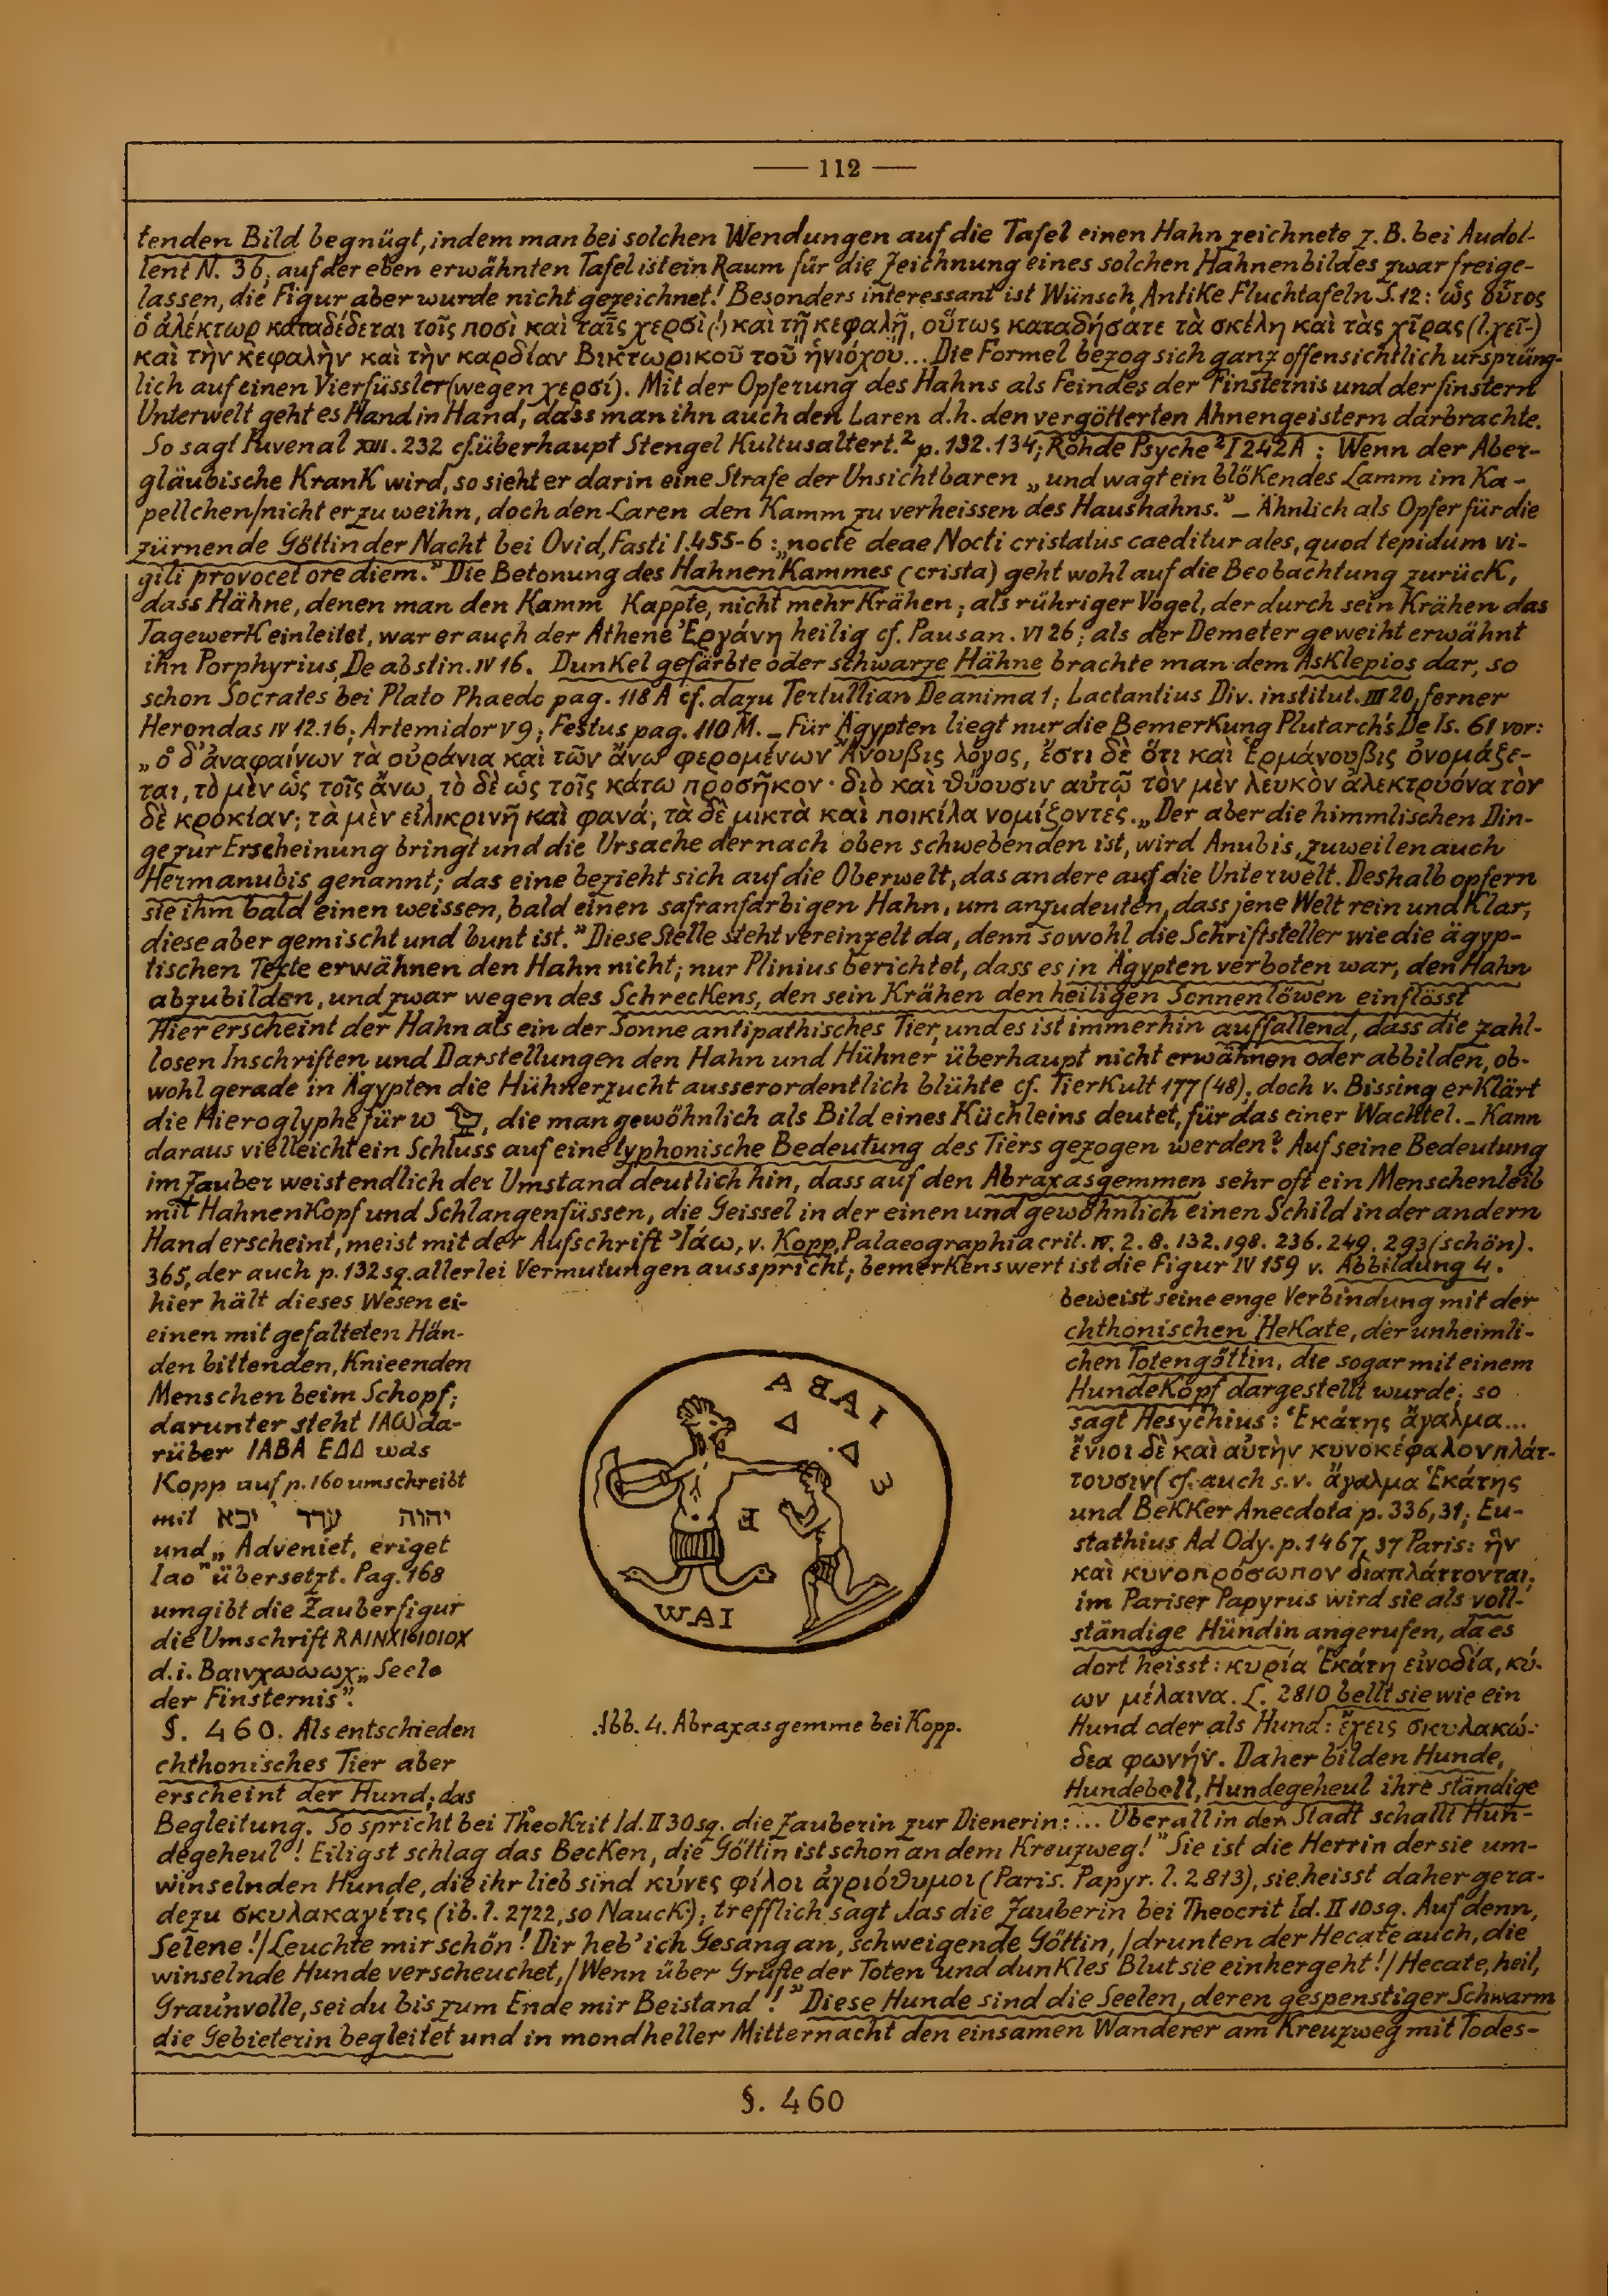 — 112 —
tenden Bild begnügt, indem man bei solchen Wendungen auf die Tafel einen Hahn zeichnete z. B. bei Audol-
lent N. 36; auf der eben erwähnten Tafel ist ein Raum für die Zeichnung eines solchen Hahnenbildes zwar freige-
lassen, die Figur aber wurde nicht gezeichnet! Besonders interessant ist Wünsch, Antike Fluchtafeln S. 12: ὡς οὗτος
ὁ ἀλέκτωρ καταδέδεται τοῖς ποσὶ καὶ ταῖς χερσὶ (!) καὶ τῇ κεφαλῇ, οὕτως καταδήσατε τὰ σκέλη καὶ τὰς χῖρας (l. χεῖ-)
καὶ τὴν κεφαλὴν καὶ τὴν καρδίαν Βικτωρικοῦ τοῦ ἡνιόχου... Die Formel bezog sich ganz offensichtlich ursprüng-
lich auf einen Vierfüssler (wegen χερσί). Mit der Opferung des Hahns als Feindes der Finsternis und der finstern
Unterwelt geht es Hand in Hand, dass man ihn auch den Laren d.h. den vergötterten Ahnengeistern darbrachte.
So sagt Juvenal XIII. 232 cf. überhaupt Stengel Kultusaltert.² p. 132. 134; Rohde Psyche ² I 242 A : Wenn der Aber-
gläubische krank wird, so sieht er darin eine Strafe der Unsichtbaren „und wagt ein blökendes Lamm im Ka-
pellchen/nicht er zu weihn, doch den Laren den Kamm zu verheissen des Haushahns." – Ähnlich als Opfer für die
zürnende Göttin der Nacht bei Ovid, Fasti I. 455-6 : „nocte deae Nocti cristatus caeditur ales, quod tepidum vi-
gili provocet ore diem." Die Betonung des Hahnenkammes (crista) geht wohl auf die Beobachtung zurück,
dass Hähne, denen man den Kamm kappte, nicht mehr krähen; als rühriger Vogel, der durch sein Krähen das
Tagewerk einleitet, war er auch der Athene Ἐργάνη heilig cf. Pausan. VI 26; als der Demeter geweiht erwähnt
ihn Porphyrius, De abstin. IV 16. Dunkel gefärbte oder schwarze Hähne brachte man dem Asklepios dar, so
schon Socrates bei Plato Phaedo pag. 118 A cf. dazu Tertullian De anima 1; Lactantius Div. institut. III 20, ferner
Herondas IV 12. 16; Artemidor V 9; Festus pag. 110 M. – Für Ägypten liegt nur die Bemerkung Plutarch's De Is. 61 vor:
„ὁ δ'ἀναφαίνων τὰ οὐράνια καὶ τῶν ἄνω φερομένων Ἄνουβις λόγος, ἔστι δὲ ὅτι καὶ Ἑρμάνουβις ὀνομάζε-
ται, τὸ μὲν ὡς τοῖς ἄνω, τὸ δὲ ὡς τοῖς κάτω προσῆκον · διὸ καὶ θύουσιν αὐτῷ τὸν μὲν λευκὸν ἀλεκτρυόνα τὸν
δὲ κροκίαν; τὰ μὲν εἰλικρινῆ καὶ φανά, τὰ δὲ μικτὰ καὶ ποικίλα νομίζοντες. „Der aber die himmlischen Din-
ge zur Erscheinung bringt und die Ursache der nach oben schwebenden ist, wird Anubis, zuweilen auch
Hermanubis genannt; das eine bezieht sich auf die Oberwelt, das andere auf die Unterwelt. Deshalb opfern
sie ihm bald einen weissen, bald einen safranfarbigen Hahn, um anzudeuten, dass jene Welt rein und klar,
diese aber gemischt und bunt ist." Diese Stelle steht vereinzelt da, denn sowohl die Schriftsteller wie die ägyp-
tischen Texte erwähnen den Hahn nicht; nur Plinius berichtet, dass es in Ägypten verboten war, den Hahn
abzubilden, und zwar wegen des Schreckens, den sein Krähen den heiligen Sonnenlöwen einflösst
Hier erscheint der Hahn als ein der Sonne antipathisches Tier, und es ist immerhin auffallend, dass die zahl-
losen Inschriften und Darstellungen den Hahn und Hühner überhaupt nicht erwähnen oder abbilden, ob-
wohl gerade in Ägypten die Hühnerzucht ausserordentlich blühte cf. Tierkult 177 (48); doch v. Bissing erklärt
die Hieroglyphe für w 𓅱, die man gewöhnlich als Bild eines Küchleins deutet, für das einer Wachtel. – Kann
daraus vielleicht ein Schluss auf eine typhonische Bedeutung des Tiers gezogen werden? Auf seine Bedeutung
im Zauber weist endlich der Umstand deutlich hin, dass auf den Abraxasgemmen sehr oft ein Menschenleib
mit Hahnenkopf und Schlangenfüssen, die Geissel in der einen und gewöhnlich einen Schild in der andern
Hand erscheint, meist mit der Aufschrift Ἰάω, v. Kopp, Palaeographia crit. IV. 2. 8. 132. 198. 236. 249. 293 (schön).
365, der auch p. 132 sq. allerlei Vermutungen ausspricht; bemerkenswert ist die Figur IV 159 v. Abbildung 4.
hier hält dieses Wesen ei-
einen mit gefalteten Hän-
den bittenden, knieenden
Menschen beim Schopf;
darunter steht ΙΑω da-
rüber ΙΑΒΑ ΕΔΔ was
Kopp auf p. 160 umschreibt
mit יבא ערד יהוה
und „Adveniet, eriget
Iao" übersetzt. Pag. 168
umgibt die Zauberfigur
die Umschrift RAINXI61010X
d. i. Βαινχωωωχ „Seele
der Finsternis".
§. 460. Als entschieden
chthonisches Tier aber
erscheint der Hund; das
ΑΒΑΙ
Δ
Δ
Ε
Ε
WAI
Abb. 4. Abraxasgemme bei Kopp.
beweist seine enge Verbindung mit der
chthonischen Hekate, der unheimli-
chen Totengöttin, die sogar mit einem
Hundekopf dargestellt wurde; so
sagt Hesychius: Ἑκάτης ἄγαλμα...
ἔνιοι δὲ καὶ αὐτὴν κυνοκέφαλον πλάτ-
τουσιν (cf. auch s. v. ἄγαλμα Ἑκάτης
und Bekker Anecdota p. 336, 31; Eu-
stathius Ad Ody. p. 1467, 37 Paris: ἣν
καὶ κυνοπρόσωπον διαπλάττονται;
im Pariser Papyrus wird sie als voll-
ständige Hündin angerufen, da es
dort heisst: κυρία Ἑκάτη εἰνοδία, κύ-
ων μέλαινα. L. 2810 bellt sie wie ein
Hund oder als Hund: ἔχεις σκυλακώ-
δεα φωνήν. Daher bilden Hunde,
Hundebell, Hundegeheul ihre ständige
Begleitung. So spricht bei Theokrit Id. II 30 sq. die Zauberin zur Dienerin: ... Überall in der Stadt schallt Hun-
degeheul! Eiligst schlag das Becken, die Göttin ist schon an dem Kreuzweg!" Sie ist die Herrin der sie um-
winselnden Hunde, die ihr lieb sind κύνες φίλοι ἀγριόθυμοι (Paris. Papyr. l. 2813), sie heisst daher gera-
dezu σκυλακαγέτις (ib. l. 2722, so Nauck); trefflich sagt das die Zauberin bei Theocrit Id. II 10 sq. Auf denn,
Selene!/Leuchte mir schön! Dir heb' ich Gesang an, schweigende Göttin,/drunten der Hecate auch, die
winselnde Hunde verscheuchet,/Wenn über Grüfte der Toten und dunkles Blut sie einhergeht!/Hecate, heil,
Graunvolle, sei du bis zum Ende mir Beistand!" Diese Hunde sind die Seelen, deren gespenstiger Schwarm
die Gebieterin begleitet und in mondheller Mitternacht den einsamen Wanderer am Kreuzweg mit Todes-
§. 460